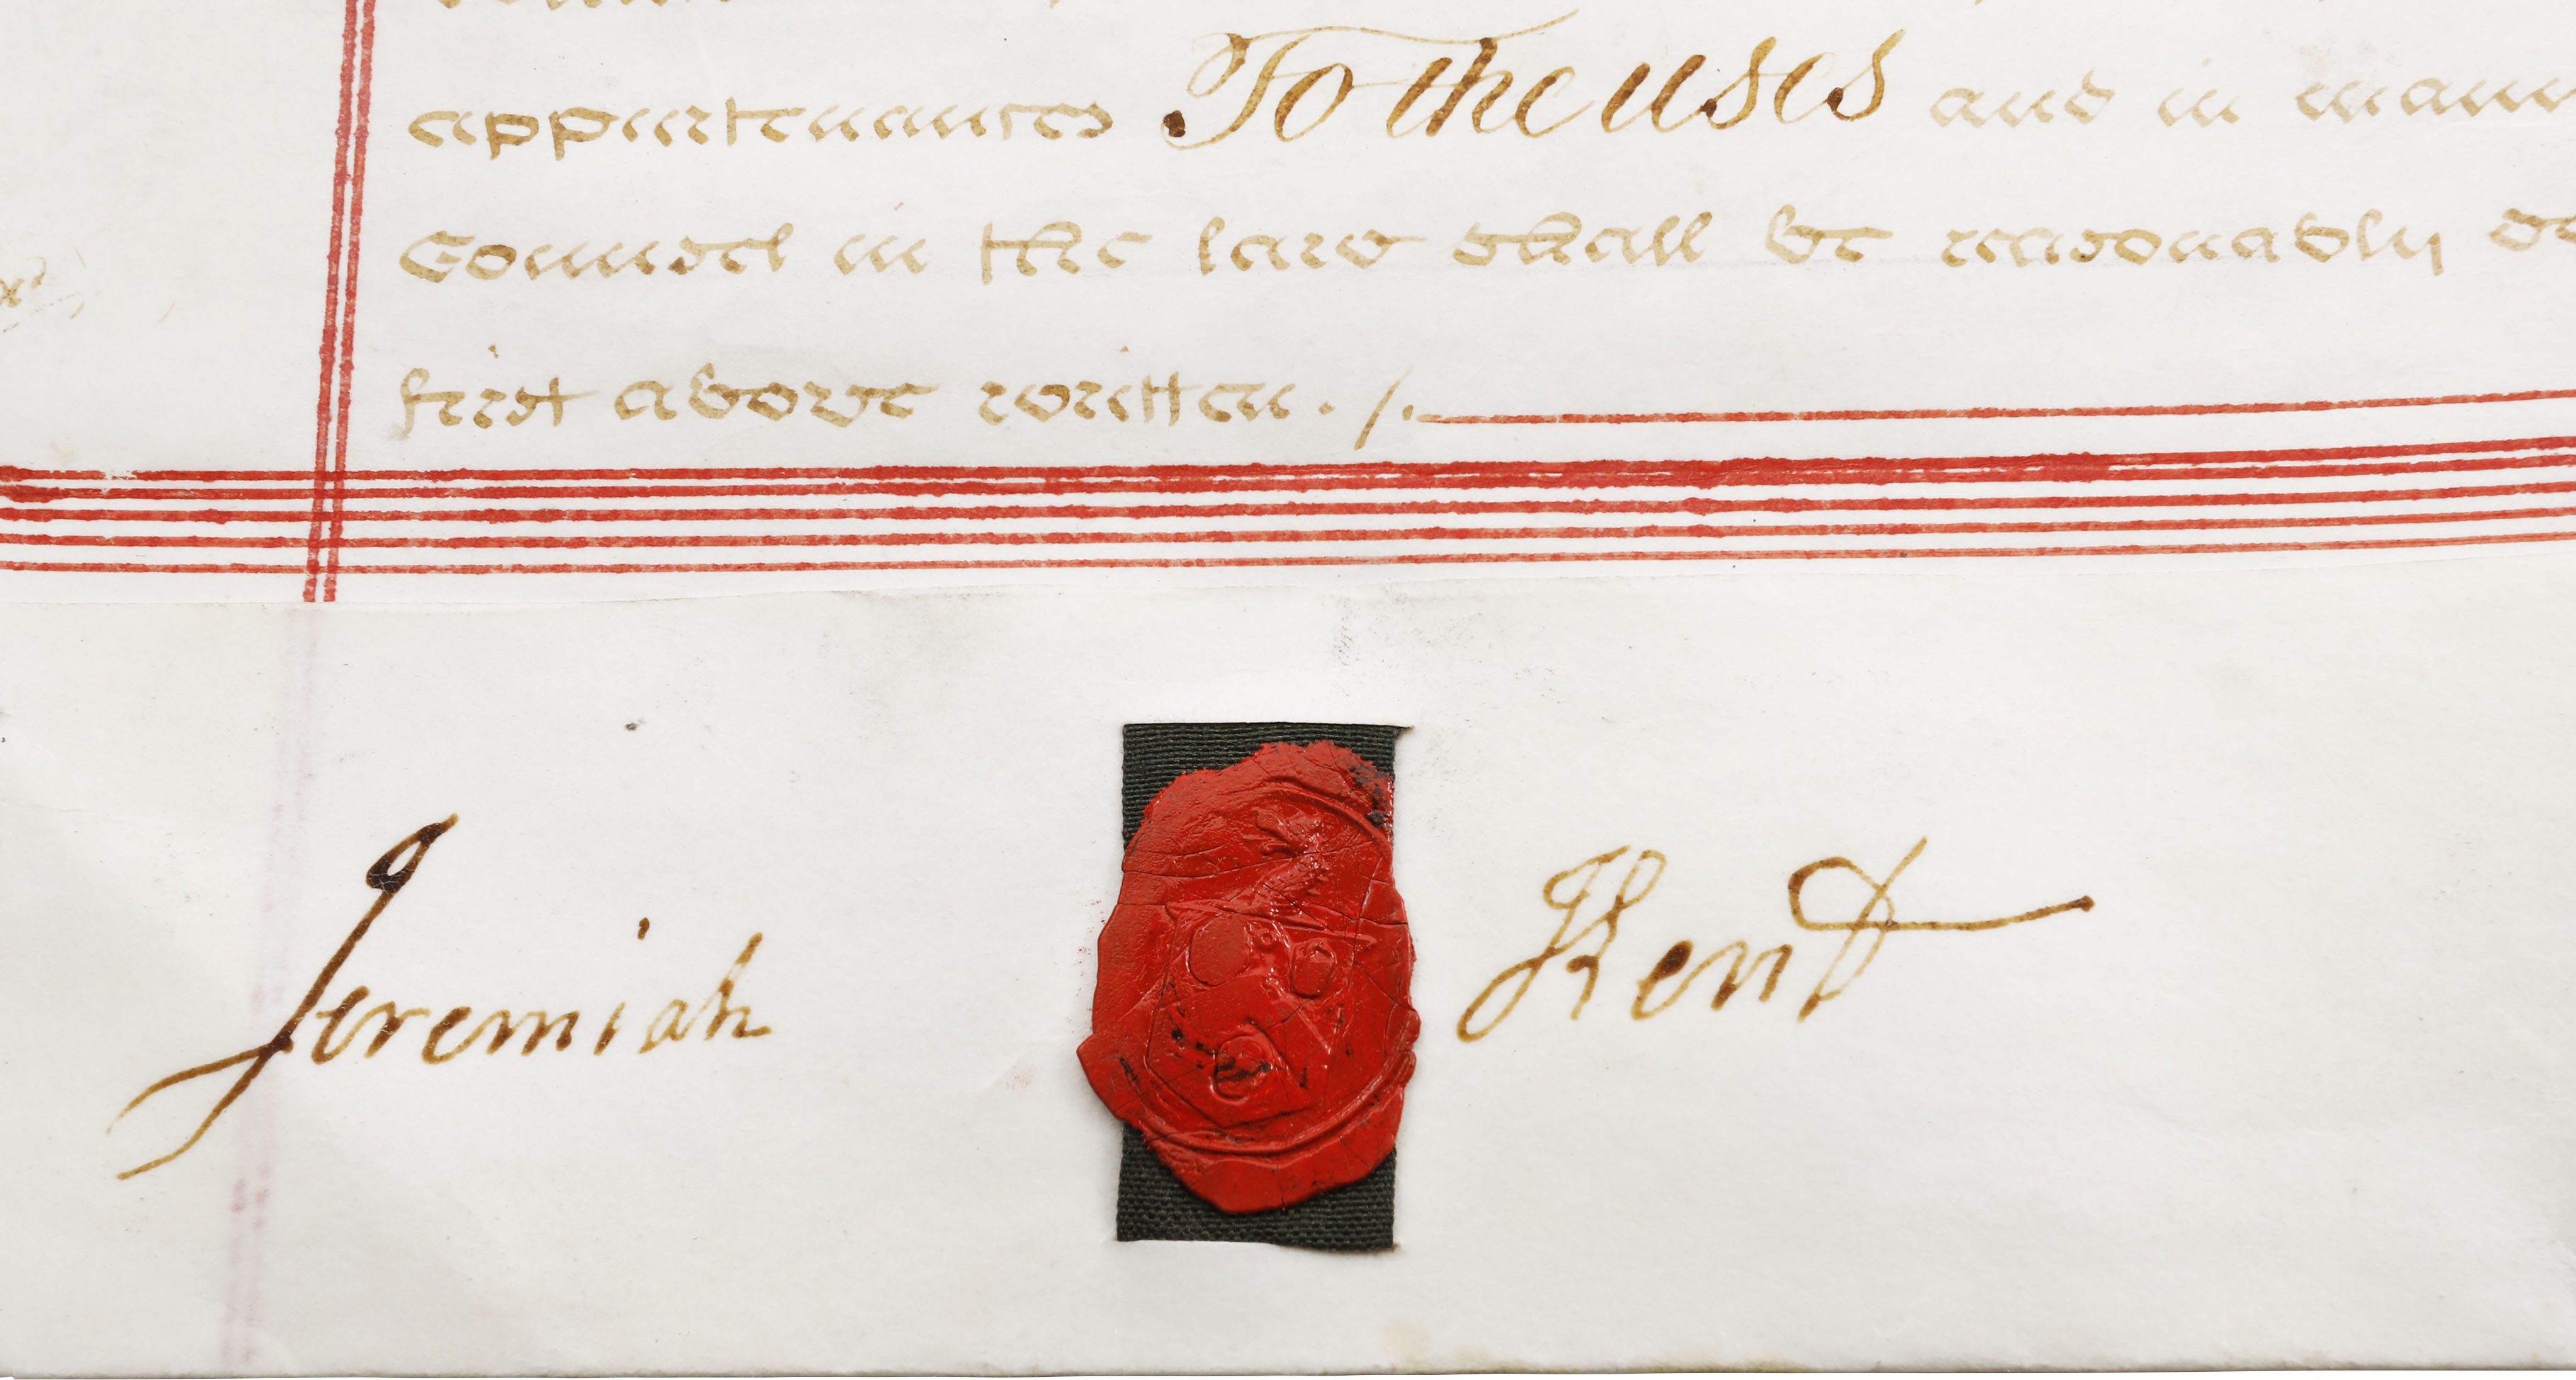 appurtenances To the uses and in
Counsel in the law shall be reasonably
first above written ./.
Jeremiah Kent